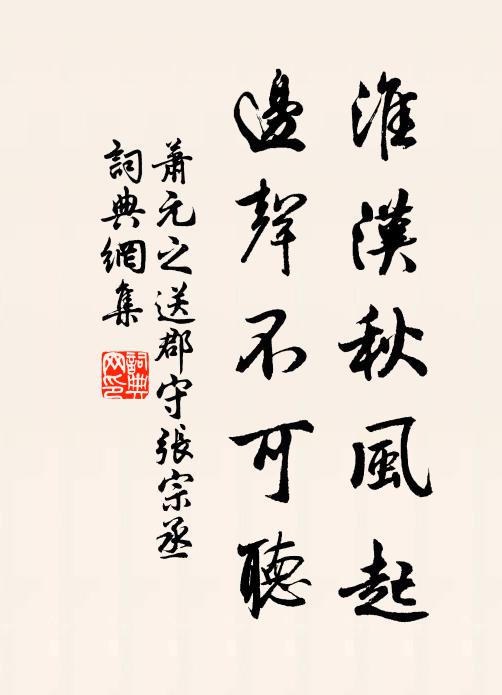 淮漢秋風起
邊聲不可聽
蕭元之送郡守張宗丞
詞典網集
詞典網印